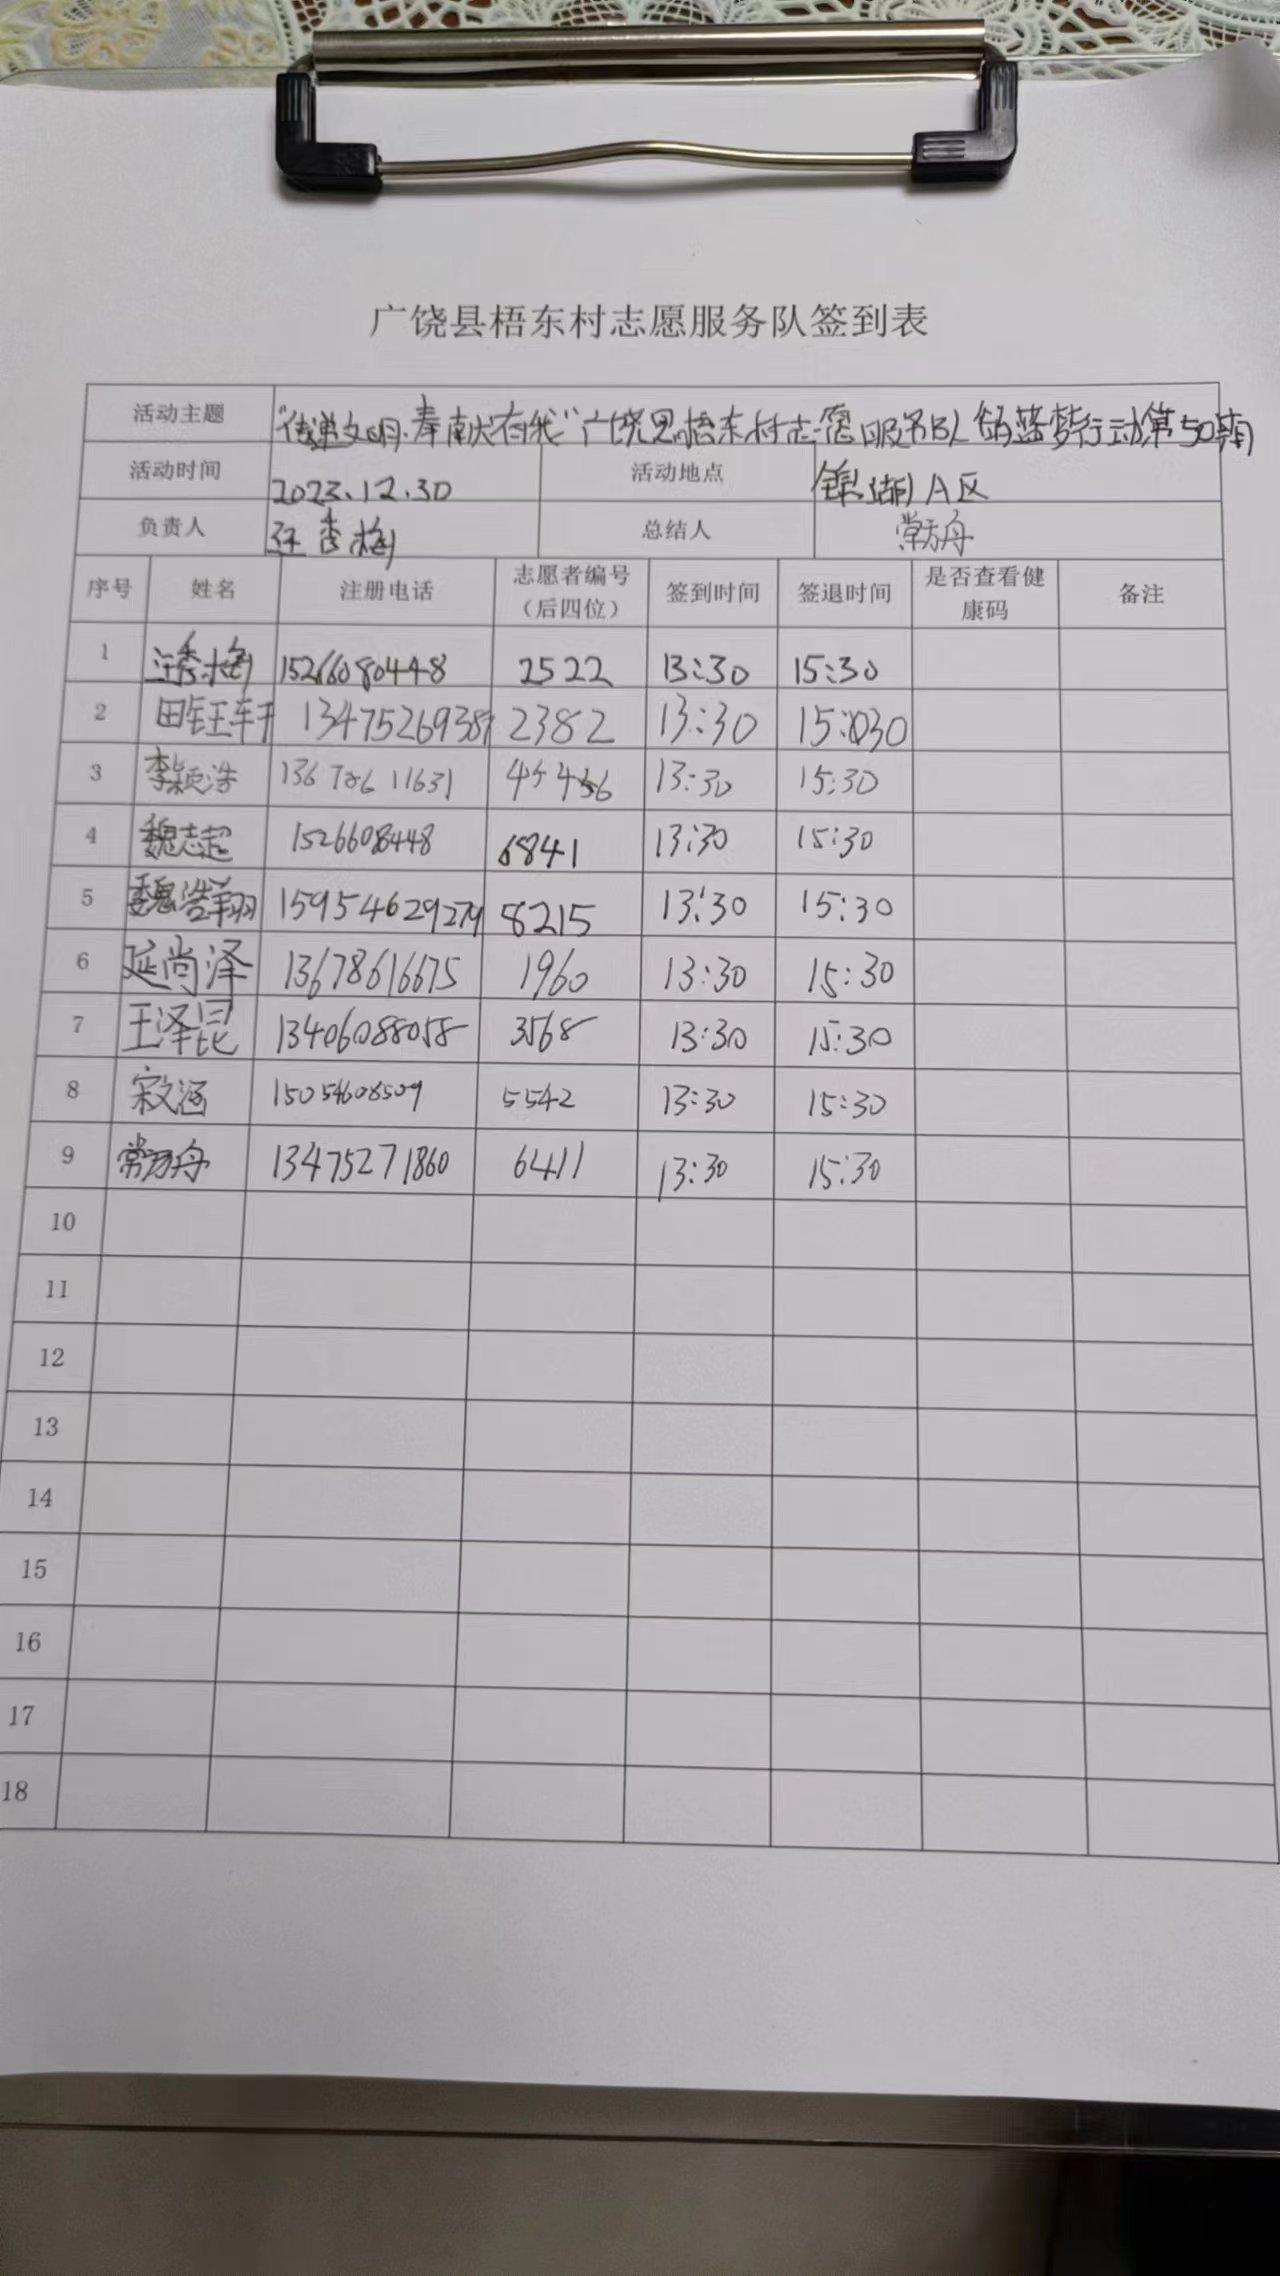 广饶县梧东村志愿服务队签到表
活动主题 "传递文明·奉献有我"广饶县梧东村志愿服务队 蔚蓝梦行动第50期
活动时间 2023.12.30 活动地点 锦湖A区
负责人 汪秀梅 总结人 常方舟
序号 姓名 注册电话 志愿者编号(后四位) 签到时间 签退时间 是否查看健康码 备注
1 汪秀梅 15266080448 2522 13:30 15:30
2 田钰轩 2382 13:30
3 李颖浩 13678611631 13:30 15:30
4 魏志超 1526608448 6841 13:30 15:30
5 魏浩翔 15954629279 8215 13:30 15:30
6 延尚泽 13678616675 1960 13:30 15:30
7 王泽昆 13406088058 3568 13:30 15:30
8 15054608509 5542 13:30 15:30
9 常方舟 13475271860 6411 13:30 15:30
10
11
12
13
14
15
16
17
18